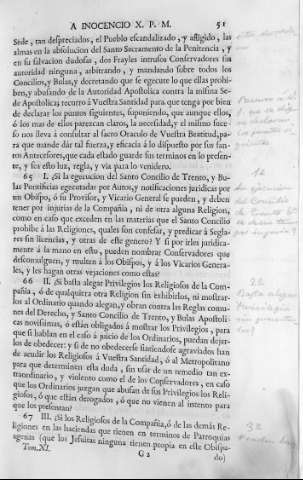 A INOCENCIO X. P. M. 51
Sede, tan despreciados, el Pueblo escandalizado, y afligido, las
almas en la absolucion del Santo Sacramento de la Penitencia, y
en su salvacion dudosas, dos Frayles intrusos Conservadores sin
autoridad ninguna, arbitrando, y mandando sobre todos los
Concilios, y Bulas, y decretando que se egecute lo que ellas prohiben,
abusando de la Autoridad Apostolica contra la misma Sede
Apostolica; recurro á Vuestra Santidad para que tenga por bien
de declarar los puntos siguientes, suponiendo, que aunque ellos,
ó los mas de ellos parezcan claros, la necesidad, y el mismo suceso
nos lleva á consultar al sacro Oraculo de Vuestra Beatitud, para
que mande dár tal fuerza, y eficacia á lo dispuesto por sus santos
Antecesores, que cada estado guarde sus terminos en lo presente,
y sea luz, regla, y via para lo venidero.
65 I. ¿Si la egecucion del Santo Concilio de Trento, y Bulas
Pontificias egecutadas por Autos, y notificaciones juridicas por
un Obispo, ó su Provisor, y Vicario General se pueden, y deben
tener por injurias de la Compañia, ni de otra alguna Religion,
como en caso que exceden en las materias que el Santo Concilio
prohibe á las Religiones, quales son confesar, y predicar á Seglares
sin licencias, y otras de este genero? Y si por irles juridicamente
á la mano en esto, pueden nombrar Conservadores que
descomulguen, y multen á los Obispos, y á los Vicarios Generales,
y les hagan otras vejaciones como estas?
66 II. ¿Si basta alegar Privilegios los Religiosos de la Compañia,
ó de qualquiera otra Religion sin exhibirlos, ni mostrarlos
al Ordinario quando alegan, y obran contra las Reglas comunes
del Derecho, y Santo Concilio de Trento, y Bulas Apostolicas
novisimas, ó están obligados á mostrar los Privilegios, para
que si hablan en el caso á juicio de los Ordinarios, puedan dejarlos
de obedecer: y si de no obedecerse sintiendose agraviados han
de acudir los Religiosos á Vuestra Santidad, ó al Metropolitano
para que determinen esta duda, sin usar de un remedio tan extraordinario,
y violento como el de los Conservadores, en caso
que los Ordinarios juzgan que abusan de sus Privilegios los Religiosos,
ó que están derogados, ó que no vienen al intento para
que los presentan?
67 III. ¿Si los Religiosos de la Compañia, ó de las demás Religiones
en las haciendas que tienen en terminos de Parroquias
agenas (que los Jesuitas ninguna tienen propia en este Obispado)
Tom. XI. G 2 do)